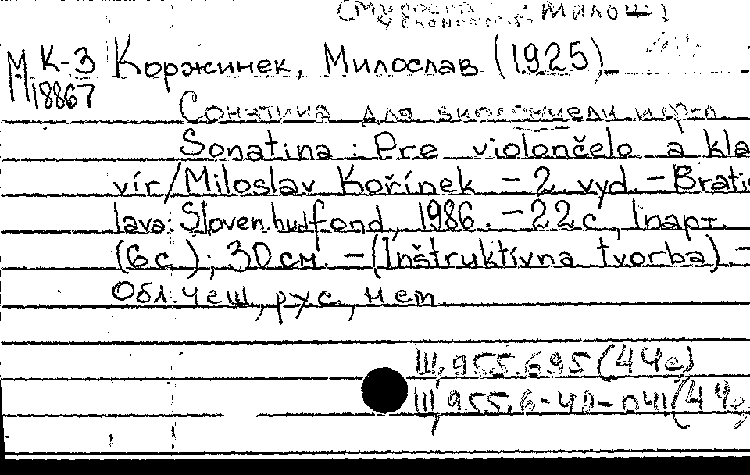 Милош)
М К-3 Коржинек, Милослав (1925)
18867
Сонатина для виолончели и ф-п.
Sonatina : Pre violončelo a kla
vír/Miloslav Kořínek – 2. vyd. – Bratis
lava: Sloven. hud. fond, 1986. – 22 с., 1 парт.
(6 с.); 30 см. – (Inštruktívna tvorba) –
Обл. чеш., рус., нем.
Ш,955.695(4Че)
Ш,955.6-40-041(4Че)